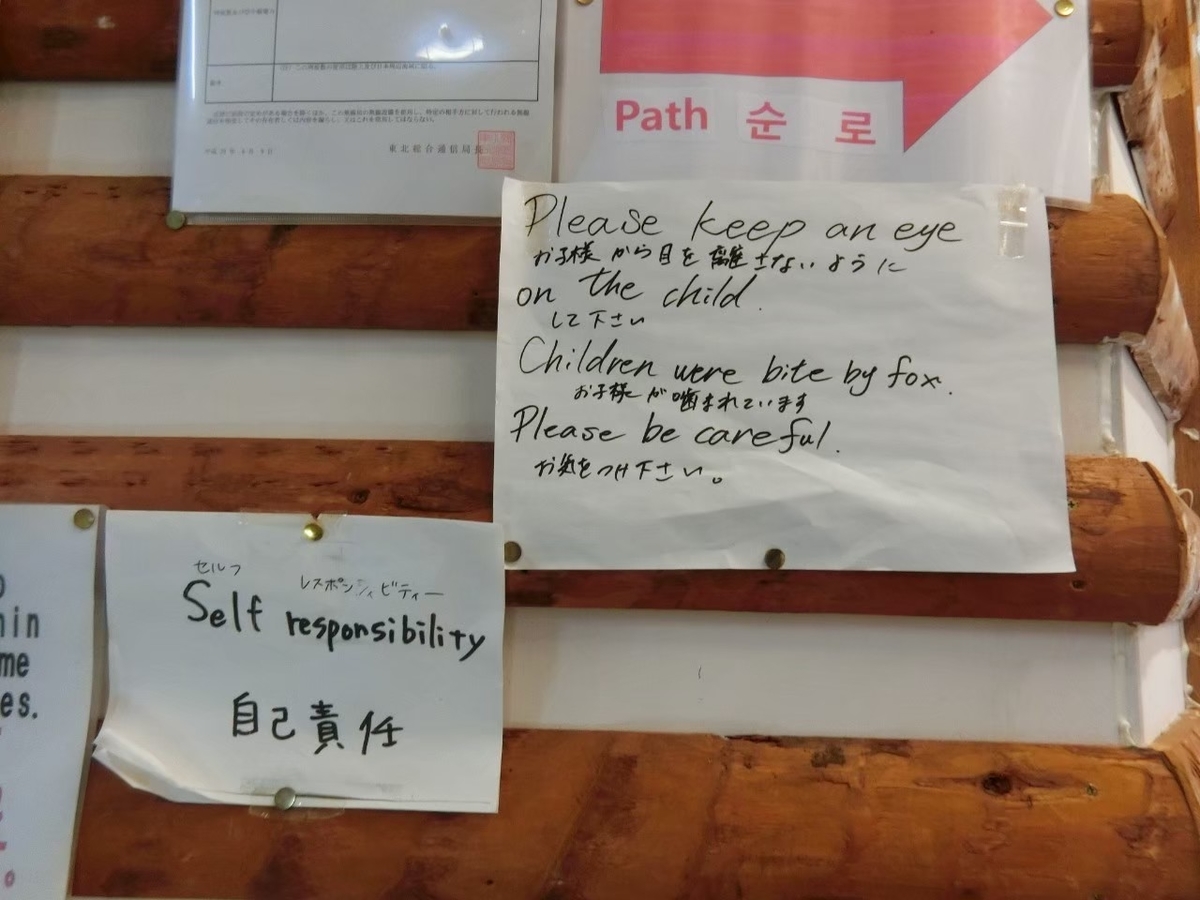 東北総合通信局長
Path 순 로
Please keep an eye
お子様から目を離さないように
on the child.
して下さい
Children were bite by fox.
お子様が噛まれています
Please be careful.
お気をつけ下さい。
セルフ レスポンシィビティー
Self responsibility
自己責任
hin
me
es.